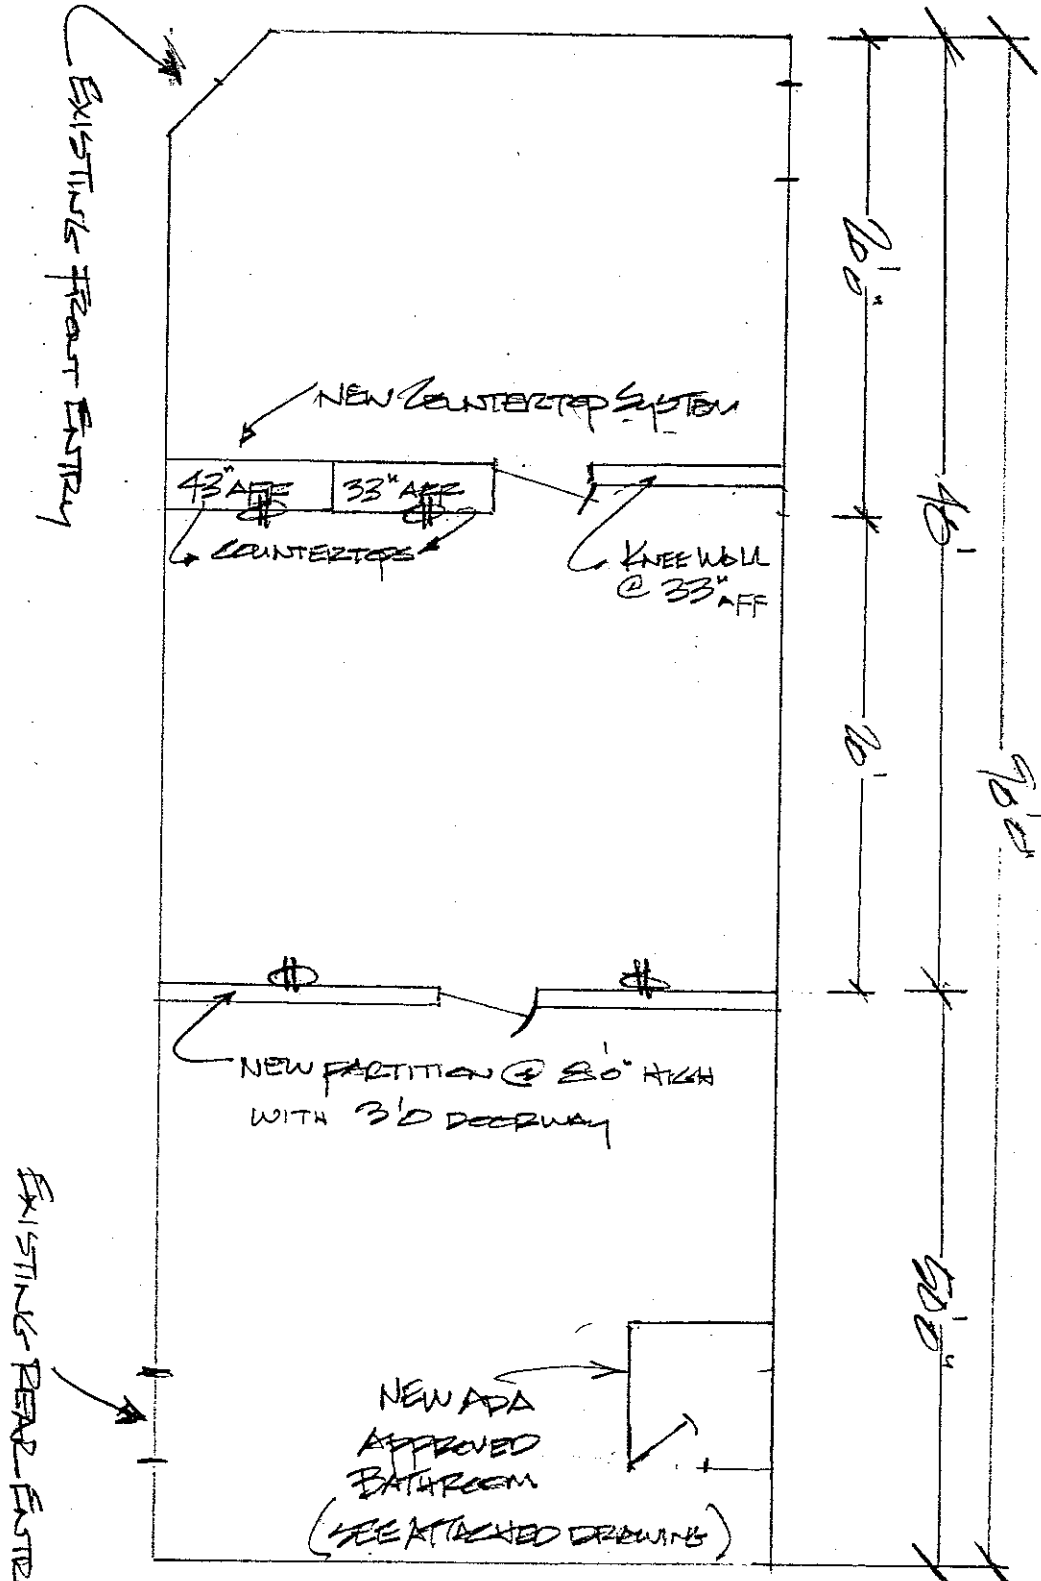 EXISTING FRONT ENTRY
20'0"
40'
90'0"
NEW COUNTERTOP SYSTEM
43" AFF
33" AFF
COUNTERTOPS
KNEE WALL
@ 33" AFF
20'
NEW PARTITION @ 8'0" HIGH
WITH 3'0 DOORWAY
50'0"
EXISTING REAR ENTR
NEW ADA
APPROVED
BATHROOM
(SEE ATTACHED DRAWING)